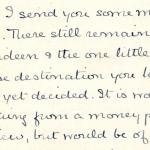 I send you some m
There still remain
deen & the one little
e destination you l
yet decided. It is wo
ing from a money p
iew, but would be of